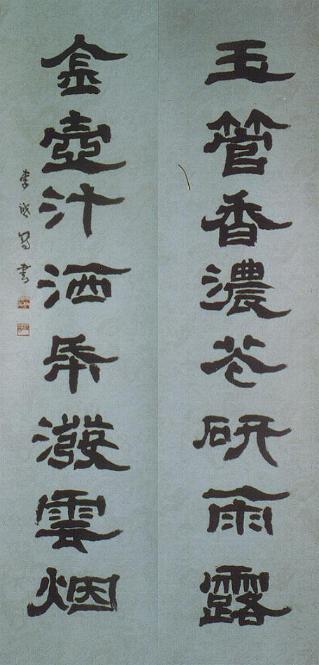 玉管香濃花研雨露
金壺汁洒帋潑雲烟
李 書